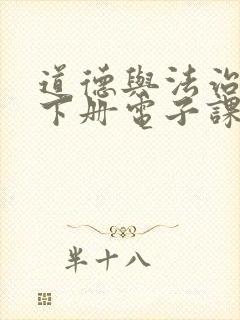 道德與法治
下册電子課
半十八